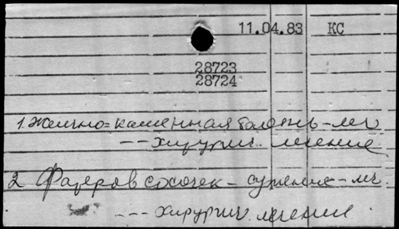 11.04.83 КС
28723
28724
1. Желчно=каменная болезнь - леч
--- хирургич. лечение
2. Фатеров сосочек - сужение - леч.
--- хирургич лечение